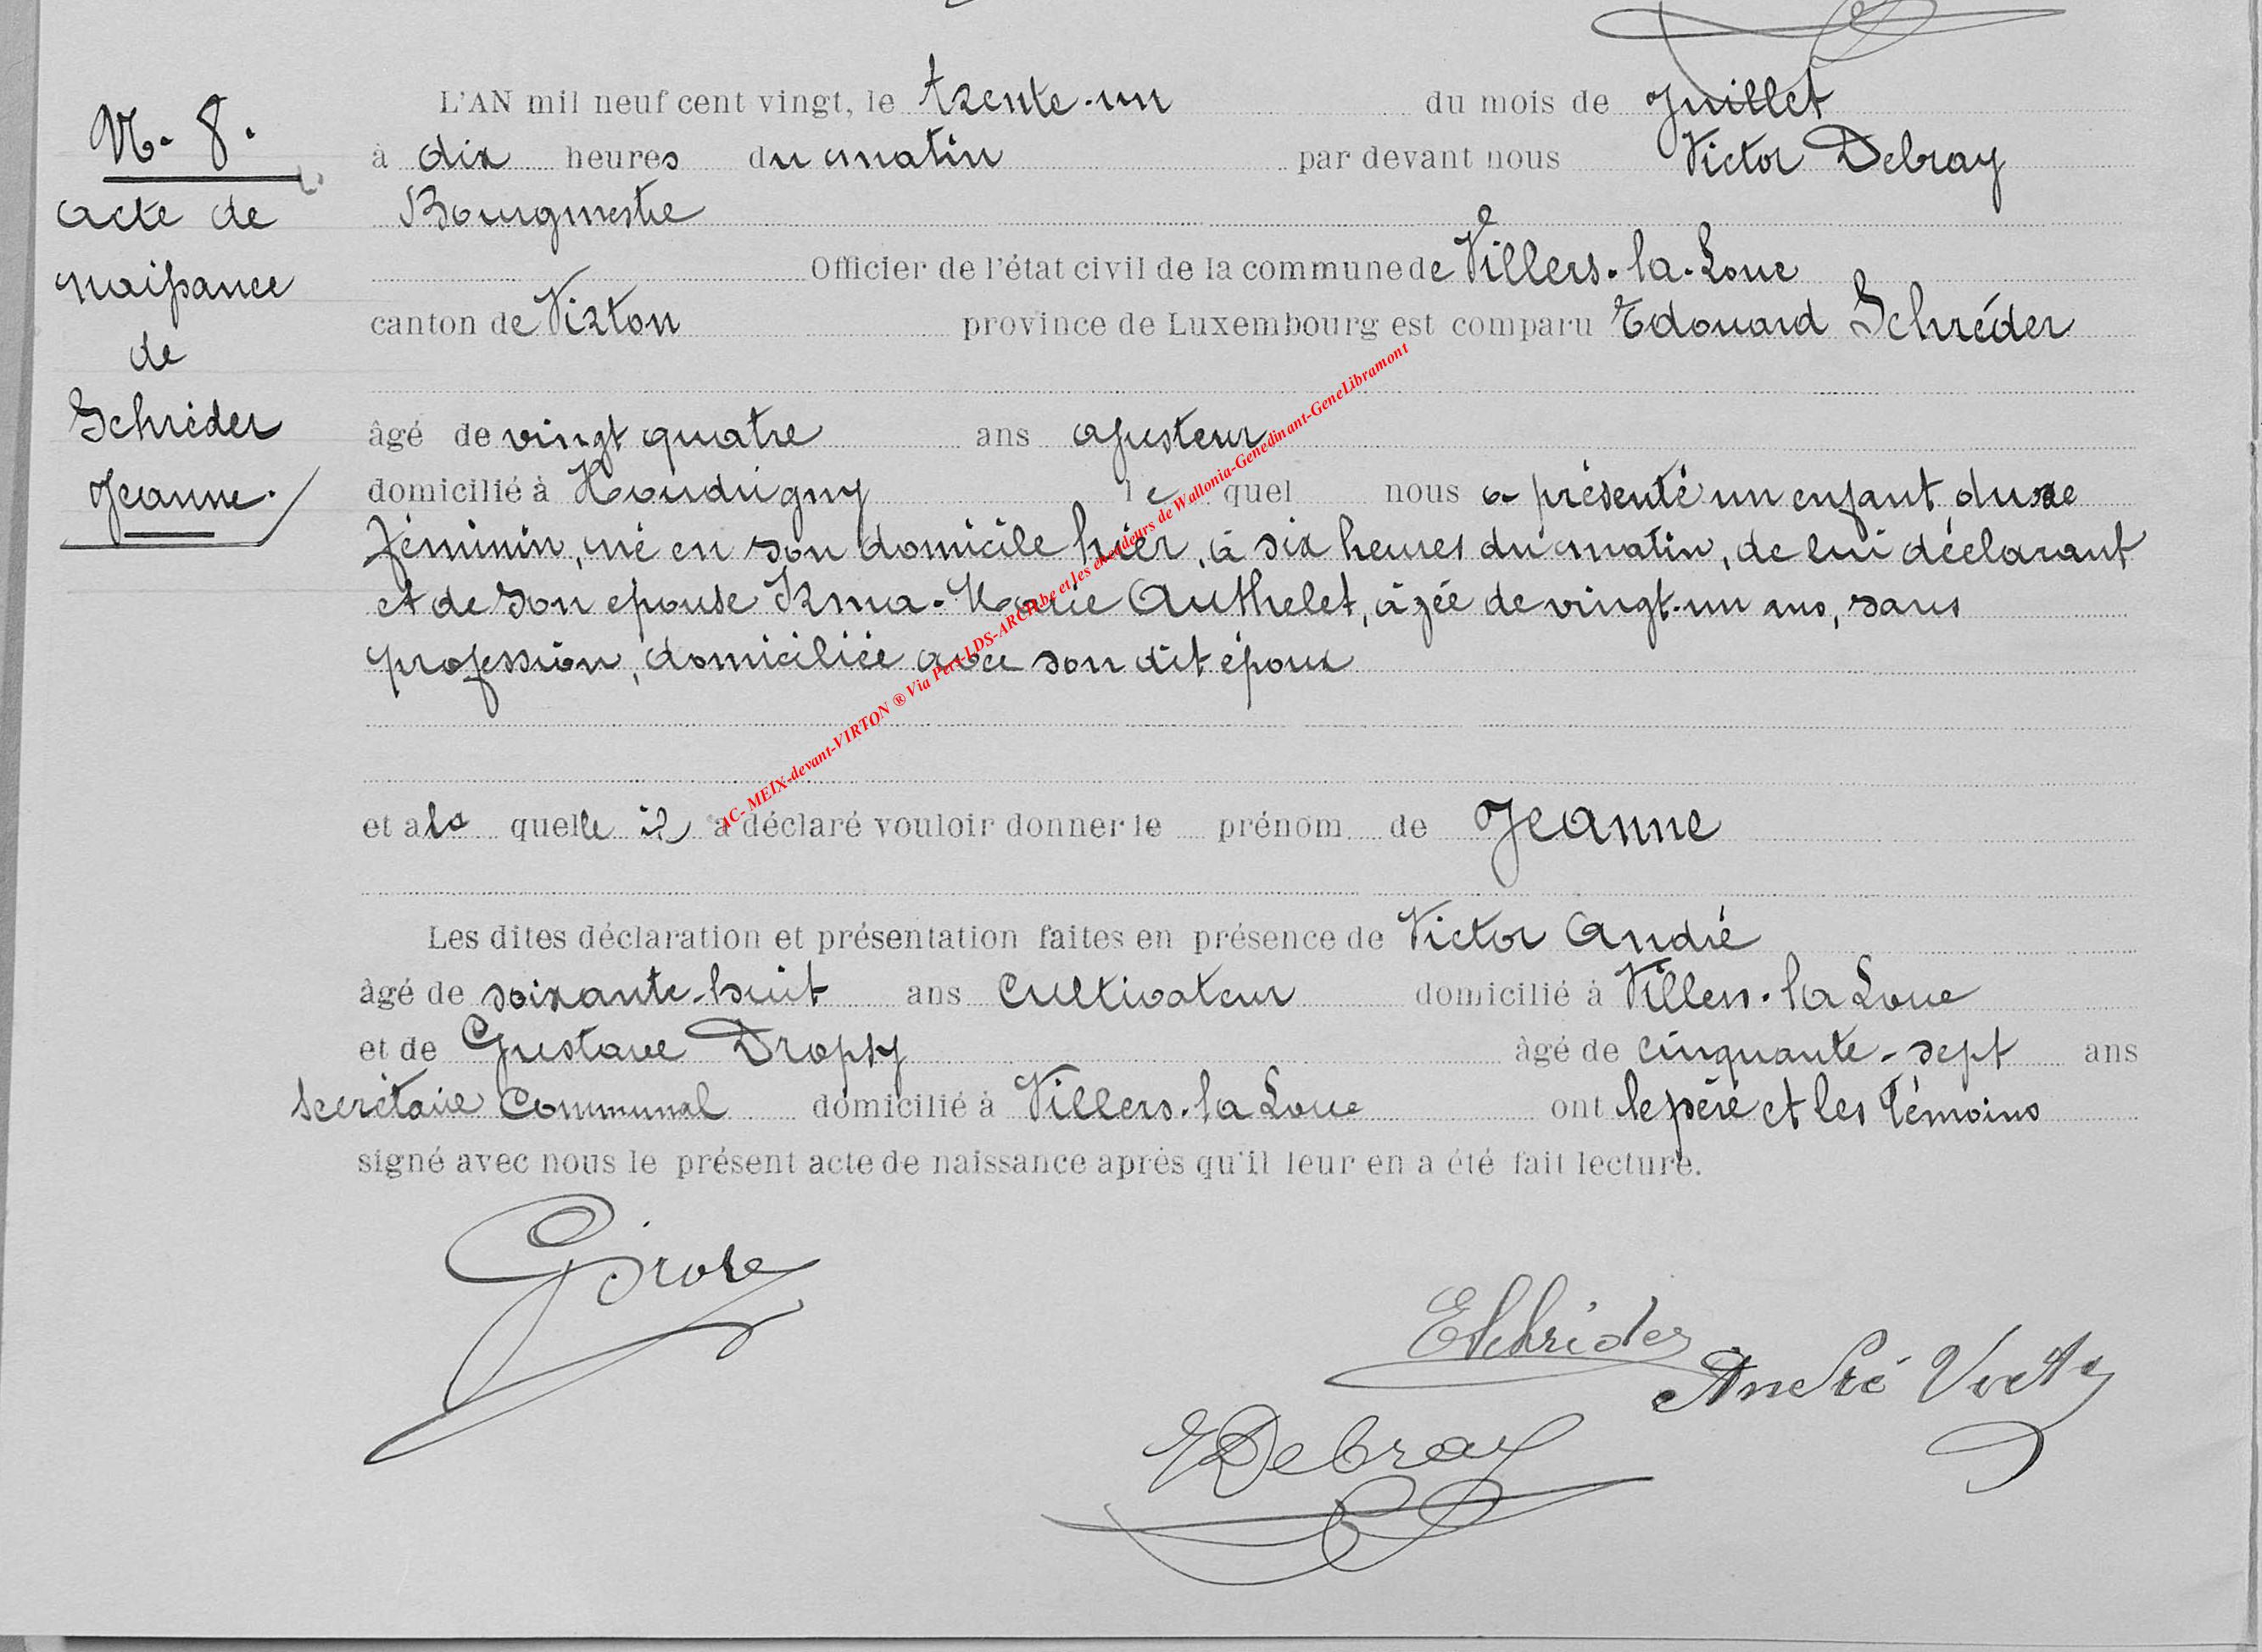 N. 8.
acte de
naissance
de
Schréder
Jeanne.
L'AN mil neuf cent vingt, le trente-un du mois de Juillet
à dix heures du matin par devant nous Victor Debray
Bourgmestre
Officier de l'état civil de la commune de Villers-la-Loue
canton de Virton province de Luxembourg est comparu Edouard Schréder
âgé de vingt quatre ans ajusteur
domicilié à Houdrigny le quel nous a présenté un enfant du sexe
féminin, né en son domicile hier, à six heures du matin, de lui déclarant
et de son épouse Irma-Marie Authelet, âgée de vingt-un ans, sans
profession, domiciliée avec son dit époux
et a la quelle il a déclaré vouloir donner le prénom de Jeanne
Les dites déclaration et présentation faites en présence de Victor André
âgé de soixante-huit ans cultivateur domicilié à Villers-la Loue
et de Gustave Dropsy âgé de cinquante-sept ans
secrétaire communal domicilié à Villers-la Loue ont le père et les témoins
signé avec nous le présent acte de naissance après qu'il leur en a été fait lecture.
ESchréder
André
VDebray
AC- MEIX-devant-VIRTON ® Via Pers-LDS-ARCH.be et les encodeurs de Wallonia-Genedinant-GeneLibramont